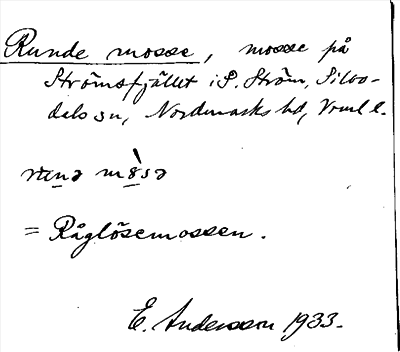 Runde mosse, mosse på
Strömsfjället i S. Ström, Silbo-
dals sn, Nordmarks hd, Vrml l.
= Råglösemossen.
E. Andersson 1933.